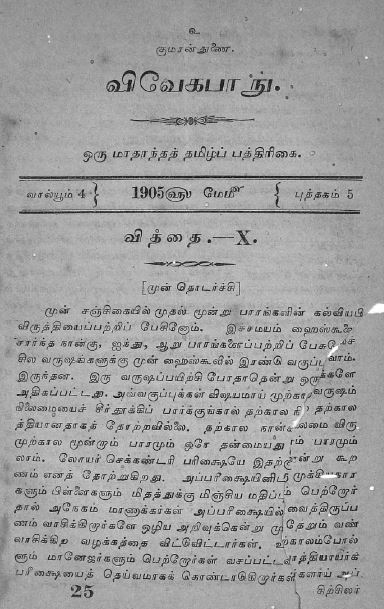 உ
குமரன்துணை.
விவேகபாநு.
ஒரு மாதாந்தத் தமிழ்ப் பத்திரிகை.
வால்யூம் 4 } 1905௵ மேமீ { புத்தகம் 5
வித்தை.—X.
[முன் தொடர்ச்சி]
முன் சஞ்சிகையில் முதல் மூன்று பாரங்களின் கல்வியபி
விருத்தியைப்பற்றிப் பேசினோம். இச்சமயம் ஹைஸ்கூலை
சார்ந்த நான்கு, ஐந்து, ஆறு பாரங்களைப்பற்றிப்
சில வருஷங்களுக்கு முன் ஹைஸ்கூலில் இரண்டு
இருந்தன. இரு வருஷப்பயிற்சி போதாதென்று
அதிகப்பட்டது. அவ்வகுப்புக்கள் விஷயமாய் முற்கால
நிலைமையைச் சீர்தூக்கிப் பார்க்குங்கால் தற்கால தற்கால
த்தியானதாகத் தோற்றவில்லை. தற்கால
முற்கால மூன்றும் பாரமும் ஒரே தன்மையது பாரமும்
லாம். லோயர் செக்கண்டரி பரிக்ஷையே கூற
ணம் எனத் தோற்றுகிறது. அப்பரிக்ஷையினி
களும் பிள்ளைகளும் மிதத்துக்கு மிஞ்சிய மதிப் பெற்றோர்
தால் அநேகம் மாணாக்கர்கள் அப்பரிக்ஷையில்
ணம் வாசிக்கிறார்களே ஒழிய அறிவுக்கென்று
வாசிக்கிற வழக்கத்தை விட்டுவிட்டார்கள்.
ளும் மானேஜர்களும் பெற்றோர்கள் வசப்பட்ட
பரிக்ஷையைத் தெய்வமாகக் கொண்டாடுகிறார்கள்
25